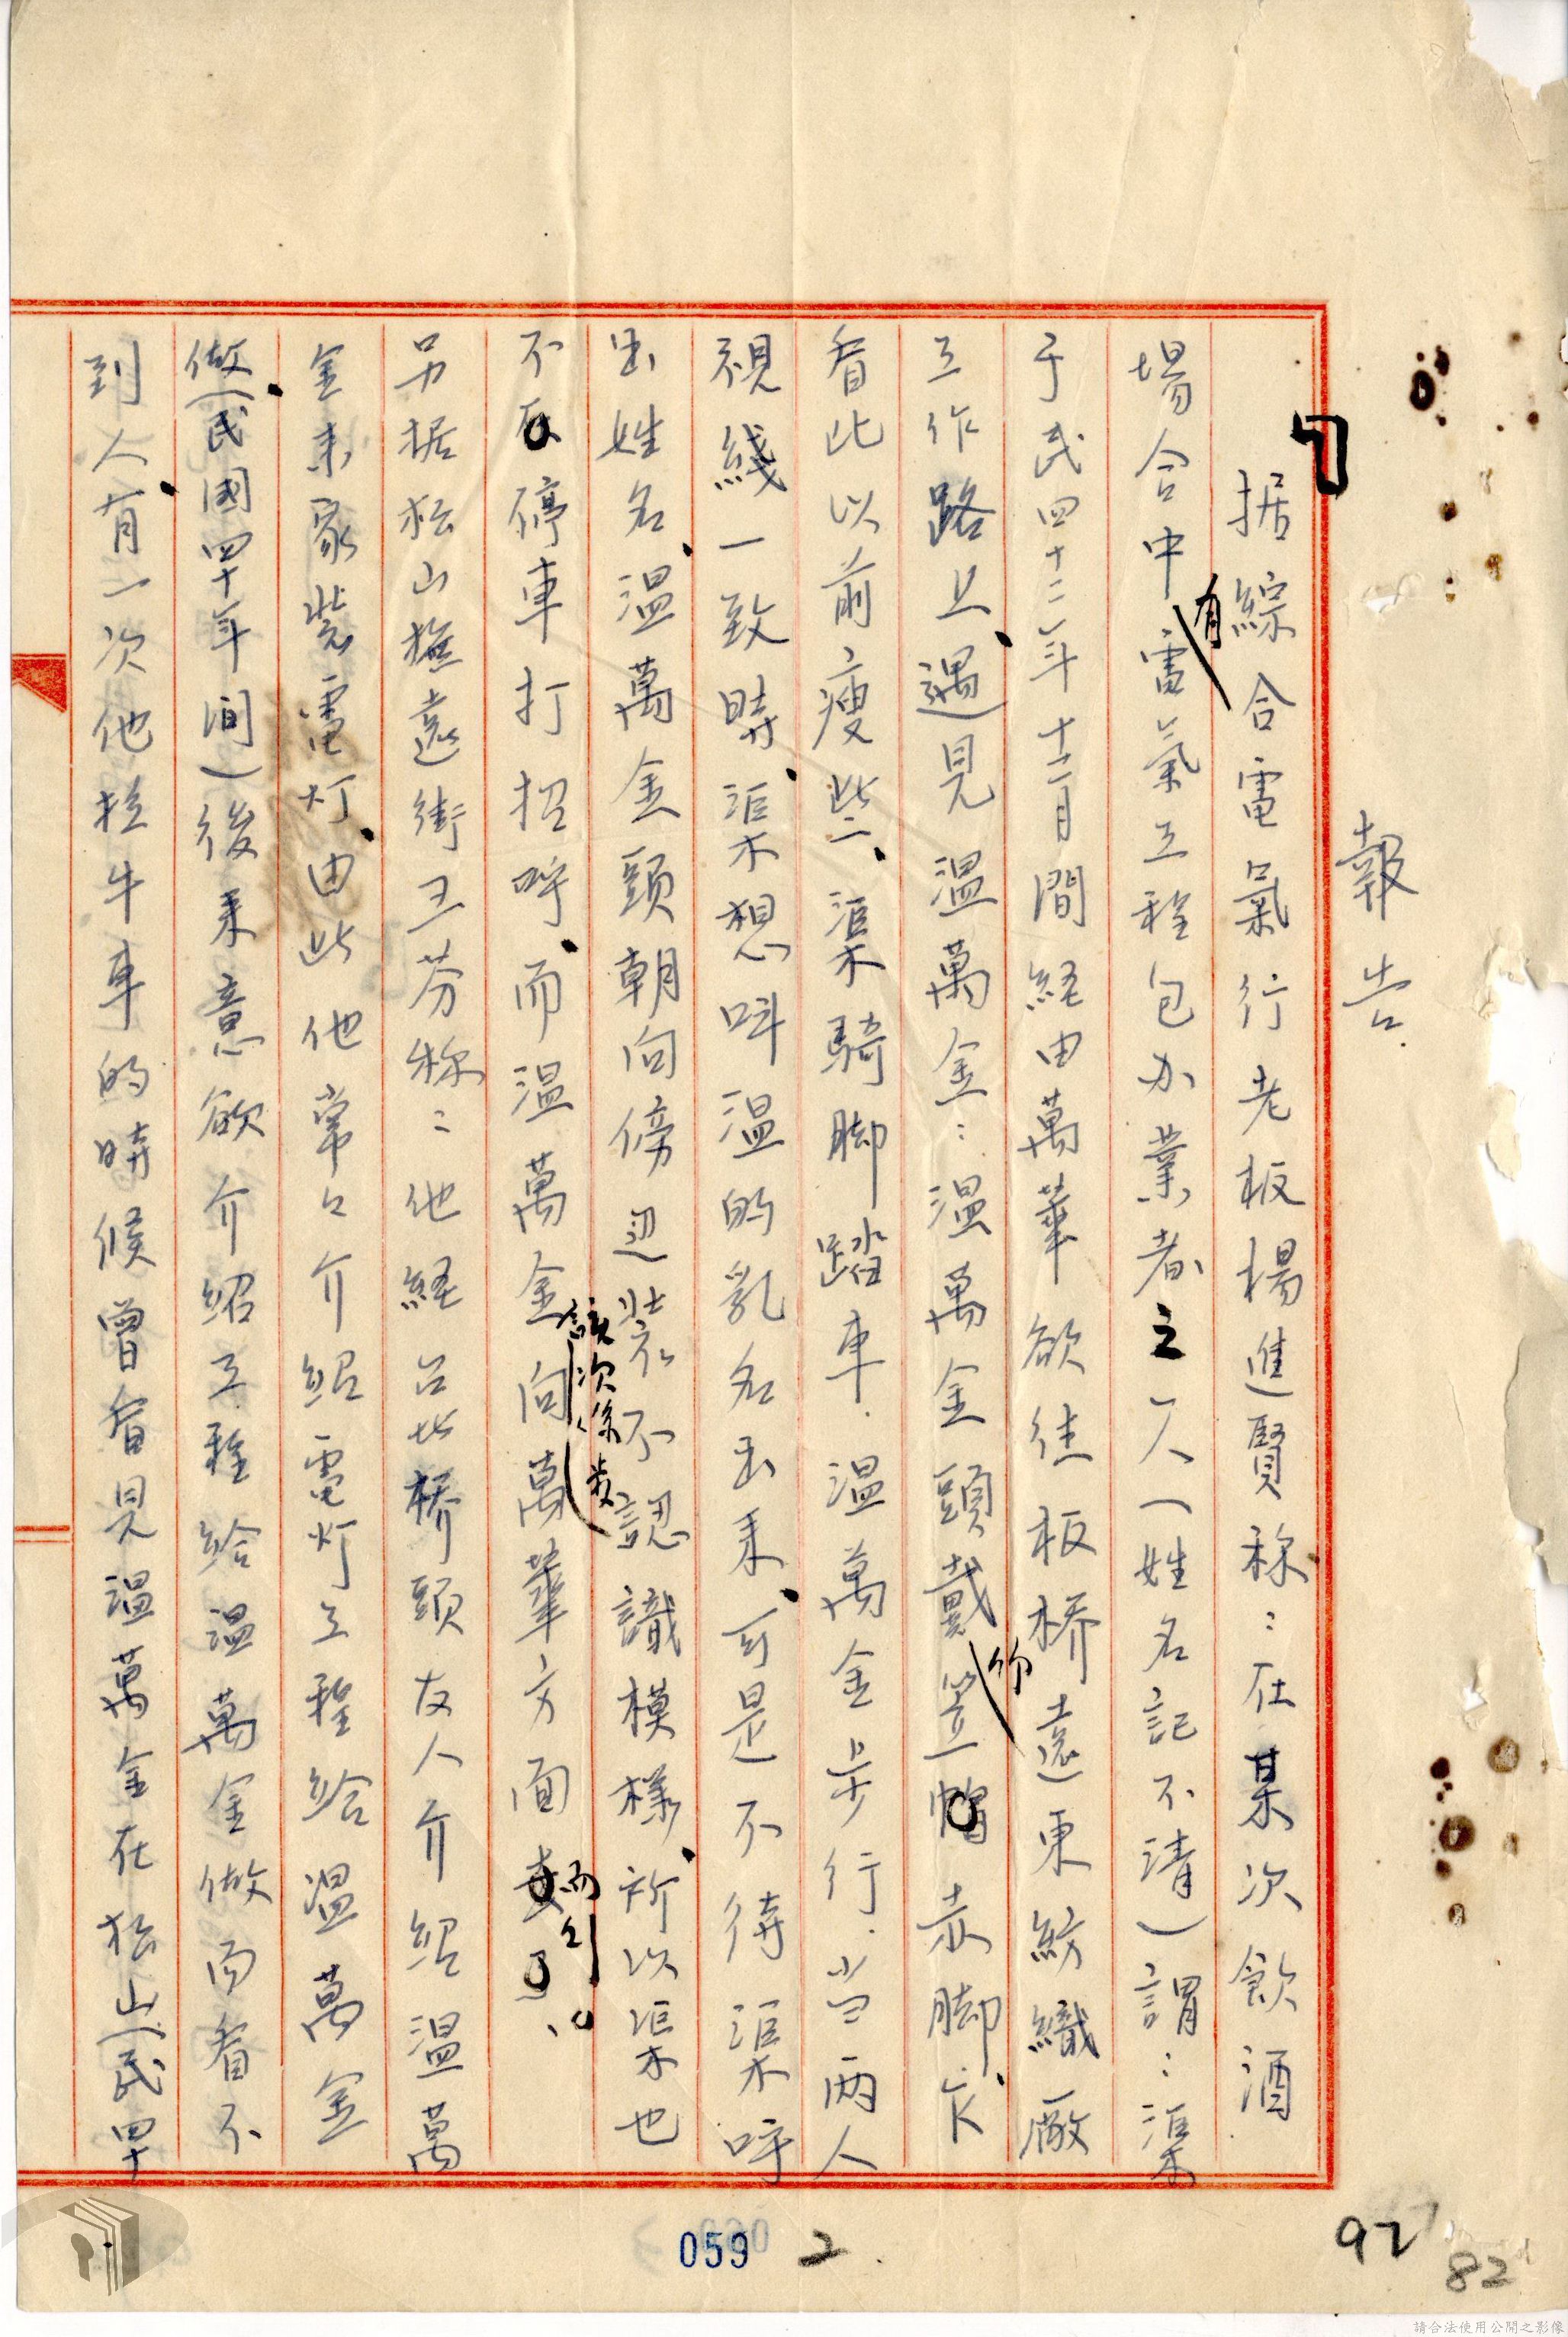 報告
据綜合電氣行老板楊進賢称：在某次飲酒
場合中有電氣工程包办業者之一人（姓名記不清）謂：渠
于民四十二年十二月間経由萬華欲往板桥遠東紡織廠
工作路上、遇見溫萬金：溫萬金頭戴竹笠帽赤脚、乍
看比以前瘦些、渠騎脚踏車．溫萬金步行．当两人
視綫一致時、渠想叫溫的乳名出来、可是不待渠呼
出姓名、溫萬金頭朝向傍辺裝不認識模様、所以渠也
不 停車打招呼、而溫萬金向萬華方面 而行。
該次係
另据松山撫遠街王芬称：他経台北桥頭友人介紹溫萬
金来家裝電灯、由此他常々介紹電灯工程給溫萬金
做、（民國四十年間）後来意欲介紹工程給溫萬金做而看不
到人、有一次他拉牛車的時候曾看見溫萬金在松山（民四十
059 2
92
82
請合法使用公開之影像